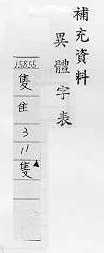 補充資料
異體字表
15855
隻
隹
3
11
隻